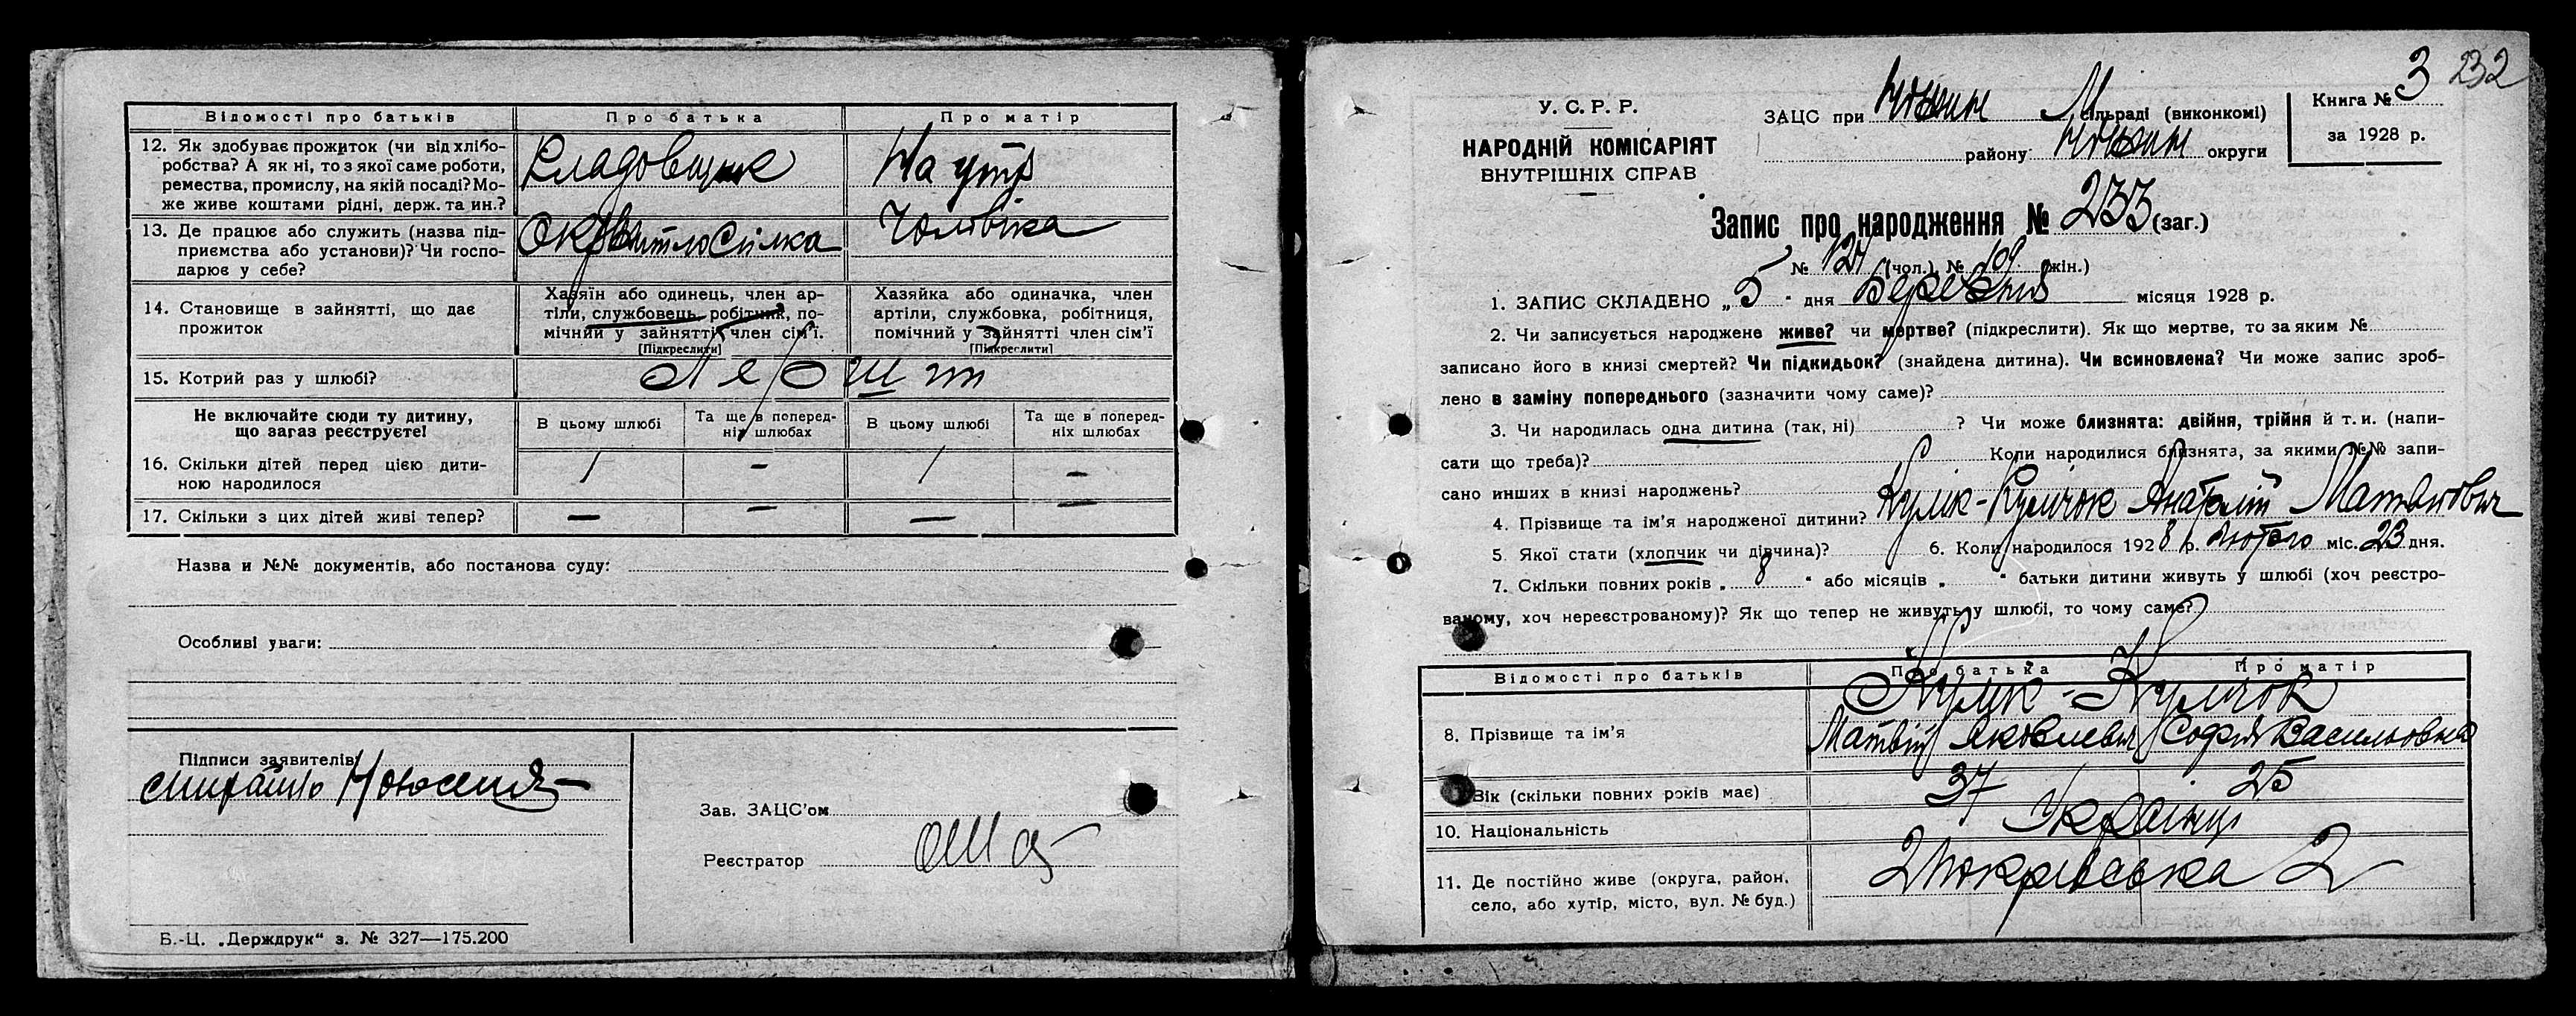 Відомості про батьків
Про батька
Про матір
12. Як здобуває прожиток (чи від хлібо-
робства? А як ні, то з якої саме роботи,
ремества, промислу, на якій посаді? Мо-
же живе коштами рідні, держ. та ин.?
Кладовщик
На утр
13. Де працює або служить (назва під-
приємства або установи)? Чи госпо-
дарює у себе?
Чоловіка
14. Становище в зайнятті, що дає
прожиток
Хазяїн або одинець, член ар-
тіли, службовець, робітник, по-
мічний у зайнятті член сім'ї.
[Підкреслити]
Хазяйка або одиначка, член
артіли, службовка, робітниця,
помічний у зайнятті член сім'ї
[Підкреслити]
15. Котрий раз у шлюбі?
Перший
Не включайте сюди ту дитину,
що загаз реєструєте!
В цьому шлюбі
Та ще в поперед-
ніх шлюбах
В цьому шлюбі
Та ще в поперед-
ніх шлюбах
16. Скільки дітей перед цією дити-
ною народилося
1 – 1 –
17. Скільки з цих дітей живі тепер?
– – – –
Назва и №№ документів, або постанова суду:
Особливі уваги:
Підписи заявителів:
Зав. ЗАЦС'ом
Реєстратор
Б.-Ц. „Держдрук“ з. № 327—175.200
232
У. С. Р. Р.
НАРОДНІЙ КОМІСАРІЯТ
ВНУТРІШНІХ СПРАВ
ЗАЦС при Ніжин М сільраді (виконкомі)
району Ніжин округи
Книга № 3
за 1928 р.
Запис про народження № 233 (заг.)
№ 124 (чол.), № 109 (жін.)
1. ЗАПИС СКЛАДЕНО „5“ дня Березня місяця 1928 р.
2. Чи записується народжене живе? чи мертве? (підкреслити). Як що мертве, то за яким №
записано його в книзі смертей? Чи підкидьок? (знайдена дитина). Чи всиновлена? Чи може запис зроб-
лено в заміну попереднього (зазначити чому саме)?
3. Чи народилась одна дитина (так, ні) ? Чи може близнята: двійня, трійня й т. и. (напи-
сати що треба)? Коли народилися близнята, за якими №№ запи-
сано инших в книзі народжень?
4. Прізвище та ім'я народженої дитини? Кулік-Кулічок Анатолій Матвійович
5. Якої стати (хлопчик чи дівчина)? 6. Коли народилося 1928 р. Лютого міс. 23 дня.
7. Скільки повних років „8“ або місяців „ “ батьки дитини живуть у шлюбі (хоч реєстро-
ваному, хоч нереєстрованому)? Як що тепер не живуть у шлюбі, то чому саме?
Відомості про батьків
Про батька
Про матір
Кулік-Кулічок
8. Прізвище та ім'я
Матвій Яковлевич
Софія Васильовна
9. Вік (скільки повних років має)
37
25
10. Національність
Українці
11. Де постійно живе (округа, район,
село, або хутір, місто, вул. № буд.)
2 Покровська 2